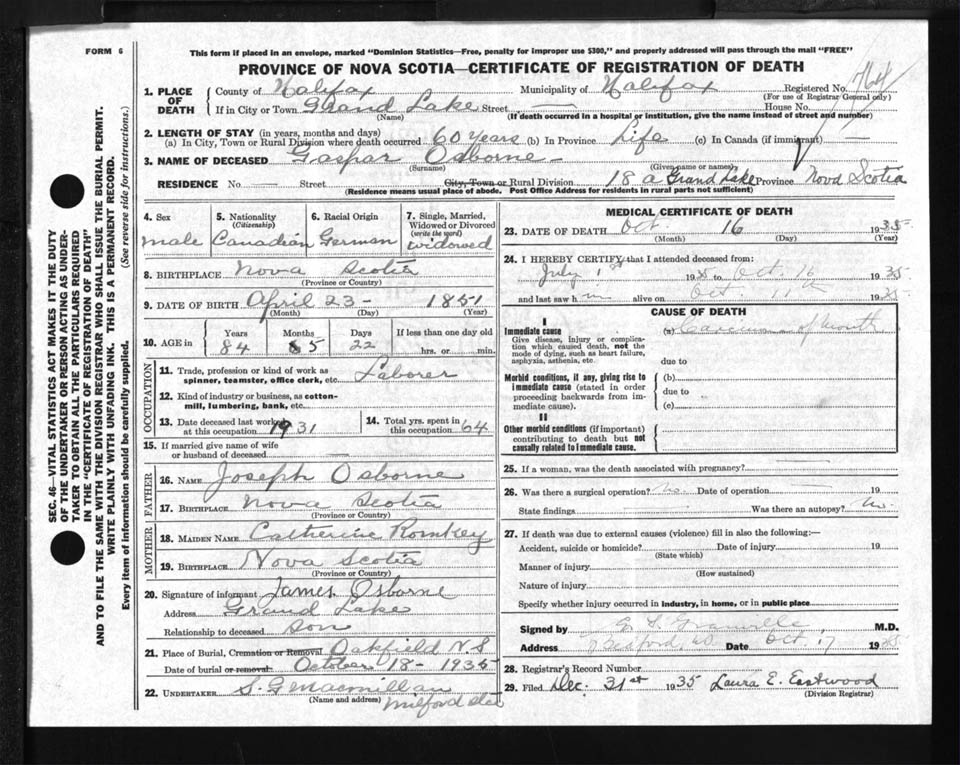 FORM 6
This form if placed in an envelope, marked "Dominion Statistics—Free, penalty for improper use $300," and properly addressed will pass through the mail "FREE"
PROVINCE OF NOVA SCOTIA—CERTIFICATE OF REGISTRATION OF DEATH
SEC. 46—VITAL STATISTICS ACT MAKES IT THE DUTY
OF THE UNDERTAKER OR PERSON ACTING AS UNDER-
TAKER TO OBTAIN ALL THE PARTICULARS REQUIRED
IN THE "CERTIFICATE OF REGISTRATION OF DEATH"
AND TO FILE THE SAME WITH THE DIVISION REGISTRAR WHO SHALL ISSUE THE BURIAL PERMIT.
WRITE PLAINLY WITH UNFADING INK. THIS IS A PERMANENT RECORD.
Every item of information should be carefully supplied. (See reverse side for instructions.)
1. PLACE OF DEATH
County of Halifax Municipality of Halifax Registered No. 764
(For use of Registrar General only)
If in City or Town Grand Lake Street — House No.
(Name) (If death occurred in a hospital or institution, give the name instead of street and number)
2. LENGTH OF STAY (in years, months and days)
(a) In City, Town or Rural Division where death occurred 60 years (b) In Province Life (c) In Canada (if immigrant) —
3. NAME OF DECEASED Gaspar Osborne —
(Surname) (Given name or names)
RESIDENCE No. — Street City, Town or Rural Division 18 a Grand Lake Province Nova Scotia
(Residence means usual place of abode. Post Office Address for residents in rural parts not sufficient)
4. Sex
male
5. Nationality
(Citizenship)
Canadian
6. Racial Origin
German
7. Single, Married, Widowed or Divorced
(write the word)
widowed
8. BIRTHPLACE Nova Scotia
(Province or Country)
9. DATE OF BIRTH April 23 - 1851
(Month) (Day) (Year)
10. AGE in
Years Months Days If less than one day old
84 5 22 hrs. or min.
OCCUPATION
11. Trade, profession or kind of work as
spinner, teamster, office clerk, etc. Laborer
12. Kind of industry or business, as cotton-
mill, lumbering, bank, etc.
13. Date deceased last worked
at this occupation 1931
14. Total yrs. spent in
this occupation 64
15. If married give name of wife
or husband of deceased —
FATHER
16. NAME Joseph Osborne
17. BIRTHPLACE Nova Scotia
(Province or Country)
MOTHER
18. MAIDEN NAME Catherine Romkey
19. BIRTHPLACE Nova Scotia
(Province or Country)
20. Signature of informant James Osborne
Address Grand Lake
Relationship to deceased son
21. Place of Burial, Cremation or Removal Oakfield N.S
Date of burial or removal October 18 - 1935
22. UNDERTAKER S. G Macmillan
(Name and address) Milford Sta
MEDICAL CERTIFICATE OF DEATH
23. DATE OF DEATH Oct. 16 1935
(Month) (Day) (Year)
24. I HEREBY CERTIFY that I attended deceased from:
July 1st 1935 to Oct. 16 1935
and last saw him alive on Oct 11th 1935
CAUSE OF DEATH
I
Immediate cause
Give disease, injury or complica-
tion which caused death, not the
mode of dying, such as heart failure,
asphyxia, asthenia, etc.
(a) Carcinoma of Mouth
due to
Morbid conditions, if any, giving rise to
immediate cause (stated in order
proceeding backwards from im-
mediate cause).
(b)
due to
(c)
II
Other morbid conditions (if important)
contributing to death but not
causally related to immediate cause.
25. If a woman, was the death associated with pregnancy? —
26. Was there a surgical operation? No. Date of operation — 19
State findings — Was there an autopsy? No.
27. If death was due to external causes (violence) fill in also the following:—
Accident, suicide or homicide? Date of injury 19
(State which)
Manner of injury
(How sustained)
Nature of injury
Specify whether injury occurred in industry, in home, or in public place
Signed by Granville M.D.
Address Date Oct. 17 1935
28. Registrar's Record Number
29. Filed Dec. 31st 1935 Laura E. Eastwood
(Division Registrar)